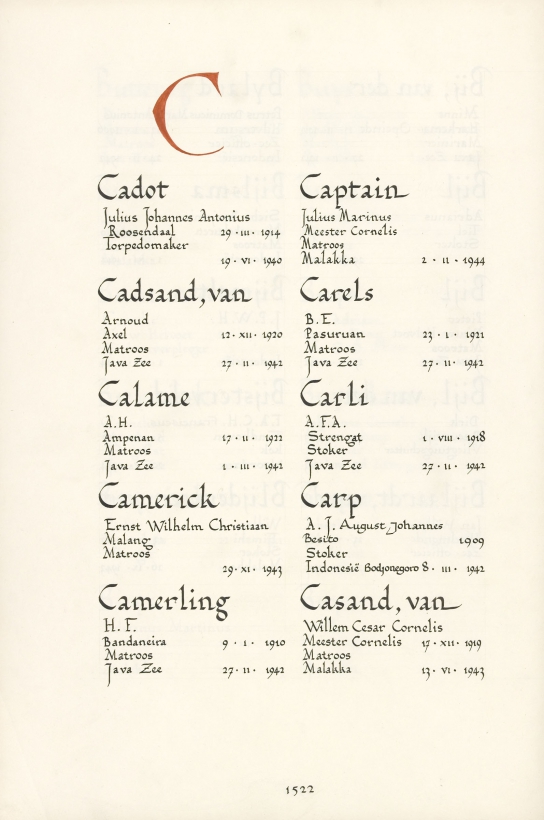 C
Cadot
Julius Johannes Antonius
Roosendaal 29 · III · 1914
Torpedomaker
19 · VI · 1940
Cadsand, van
Arnoud
Axel 12 · XII · 1920
Matroos
Java Zee 27 · II · 1942
Calame
A.H.
Ampenan 17 · II · 1922
Matroos
Java Zee 1 · III · 1942
Camerick
Ernst Wilhelm Christiaan
Malang
Matroos
29 · XI · 1943
Camerling
H. F.
Bandaneira 9 · I · 1910
Matroos
Java Zee 27 · II · 1942
Captain
Julius Marinus
Meester Cornelis
Matroos
Malakka 2 · II · 1944
Carels
B. E.
Pasuruan 23 · I · 1921
Matroos
Java Zee 27 · II · 1942
Carli
A.F.A.
Strengat 1 · VIII · 1918
Stoker
Java Zee 27 · II · 1942
Carp
A. J. August Johannes
Besito 1909
Stoker
Indonesië Bodjonegoro 8 · III · 1942
Casand, van
Willem Cesar Cornelis
Meester Cornelis 17 · XII · 1919
Matroos
Malakka 13 · VI · 1943
1522